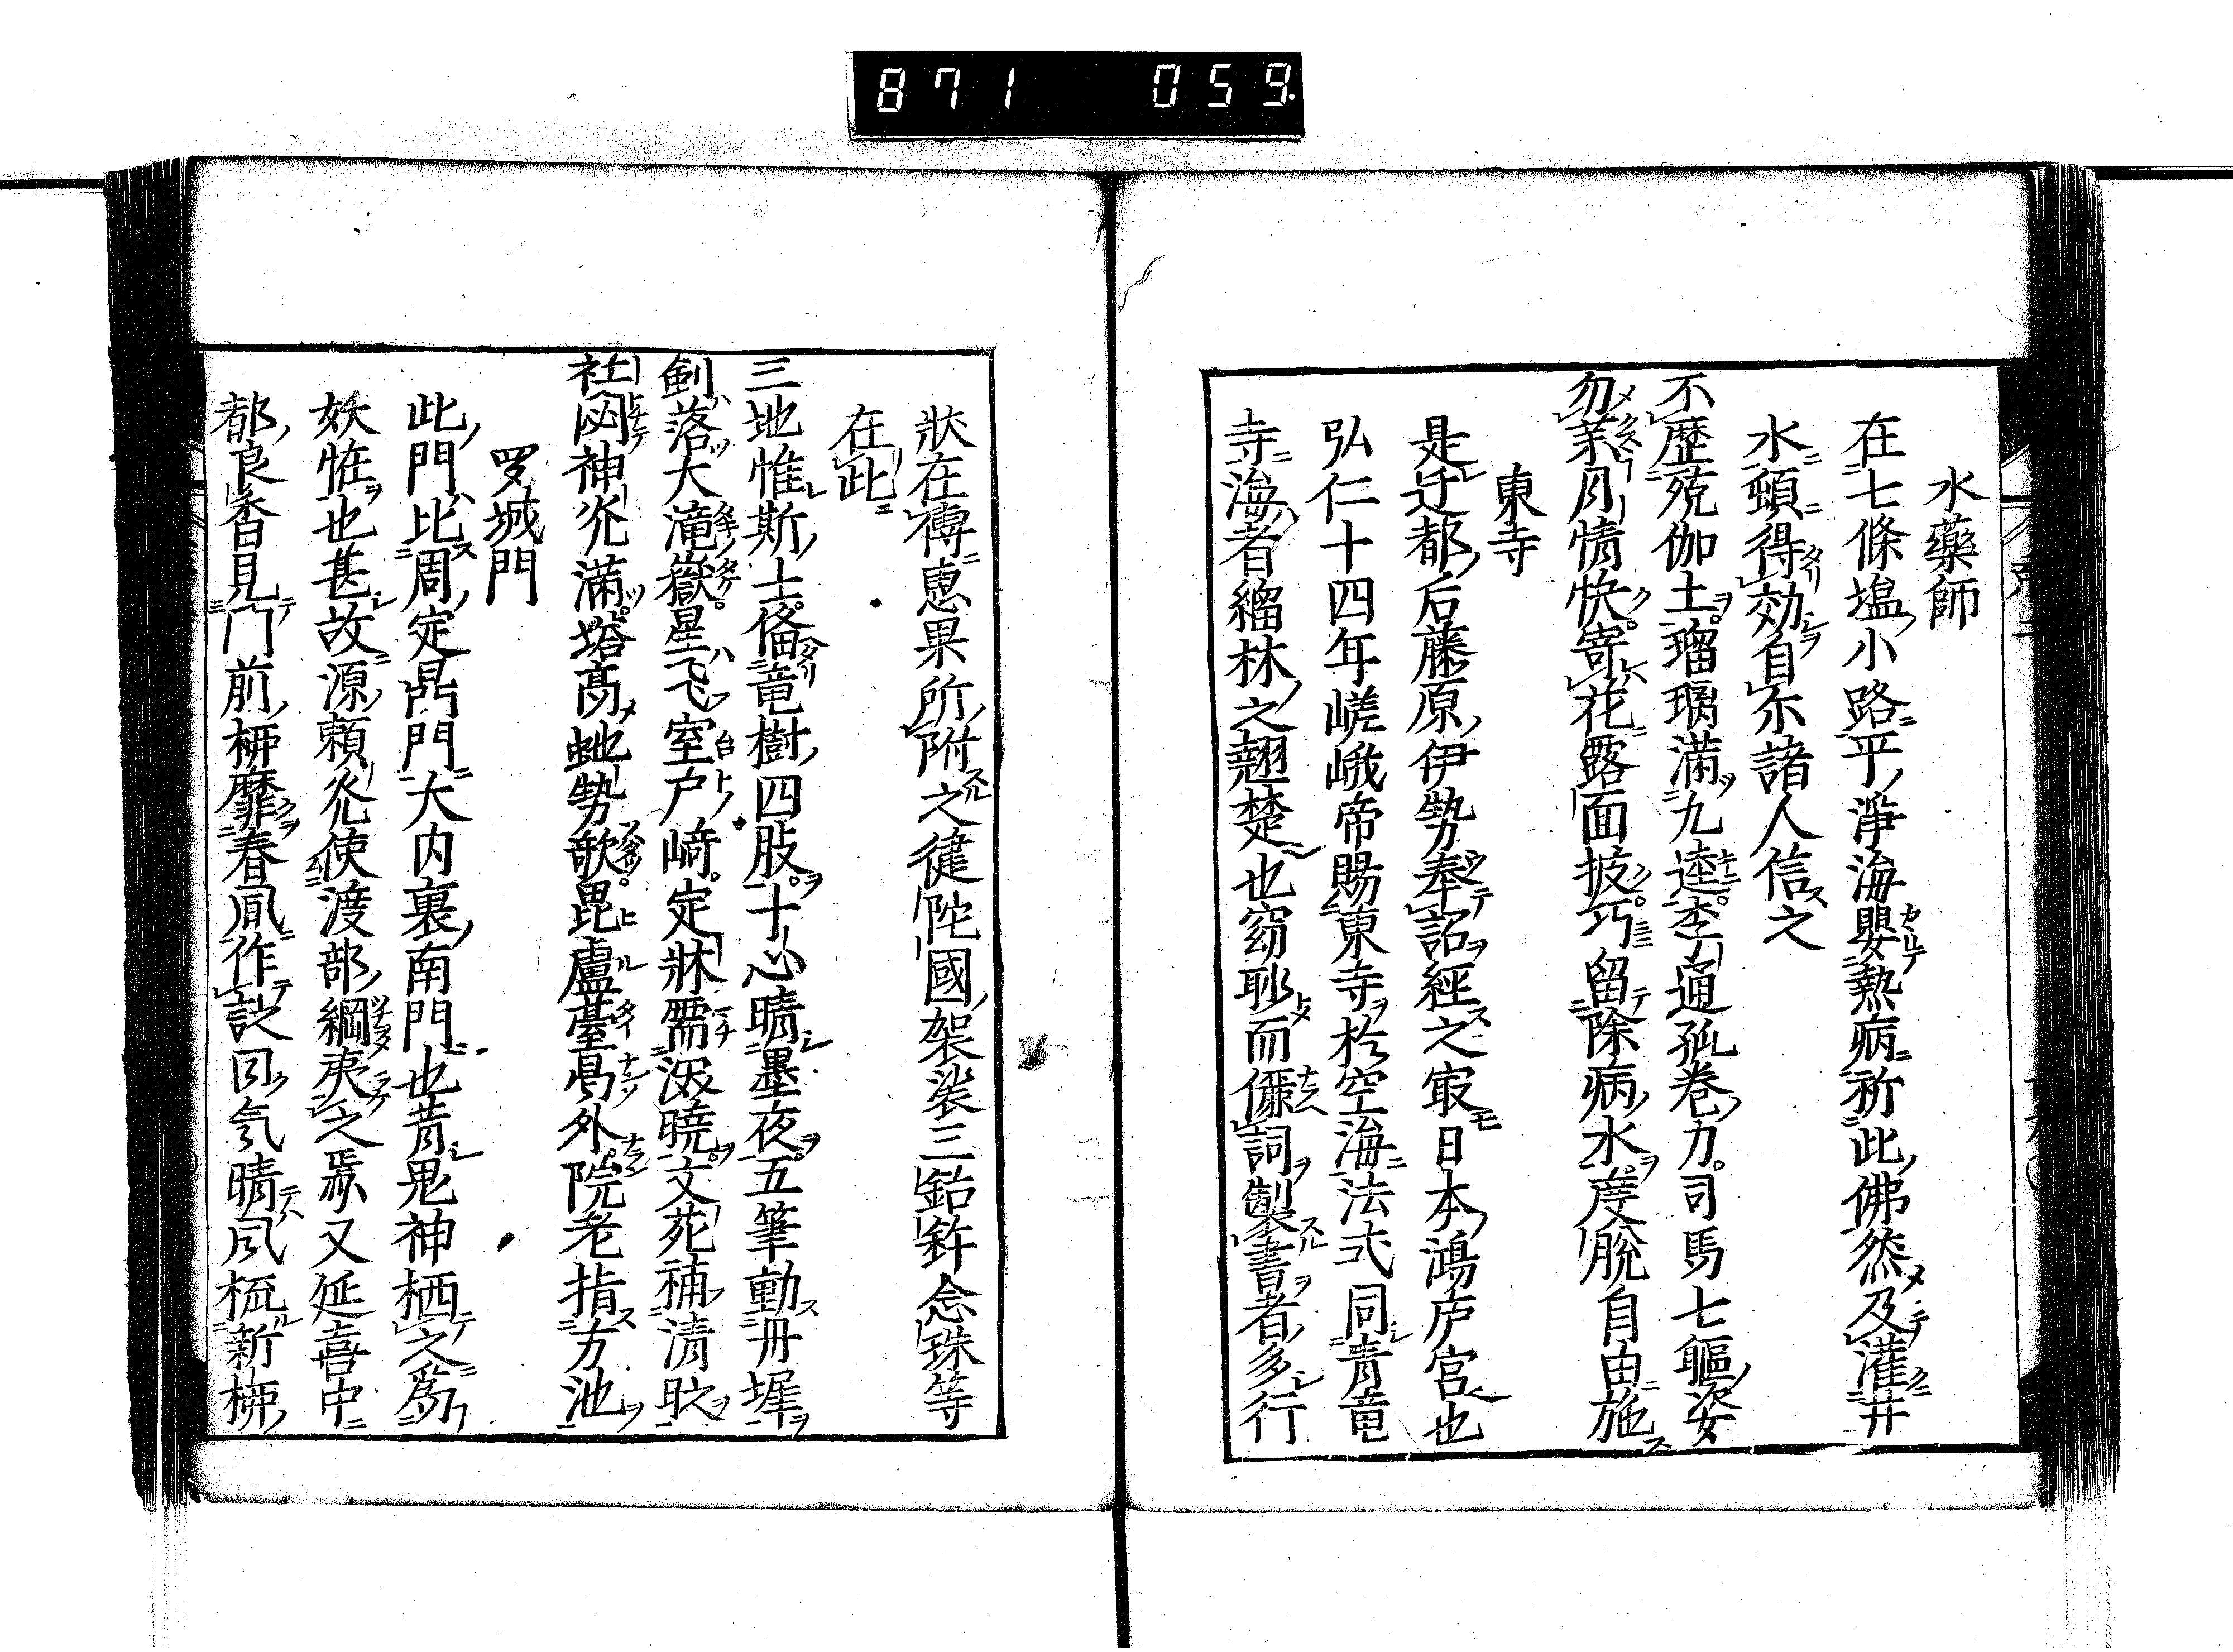 871 059
水藥師
在七條塩小路平淨海嬰熱病祈此佛然及灌井
水頓得効自尓諸人信之
不歴殑伽土瑠璃滿九逵李通孤巻力司馬七軀姿
勿業月情快寄花露面披巧留除病水度脫自由施
東寺
是迁都后藤原伊勢奉詔經之冣日本鴻庐宫也
弘仁十四年嵯峨帝賜東寺於空海法式同青竜
寺海者緇林之翹楚也窈耽而儷詞製書者多行
狀在禣惠果所附之健陀國袈裟三鈷鈴念珠等
在此
三地惟斯士俻竜樹四肢十心晴墨夜五筆動丹墀
劍落大滝嶽星飞室户﨑定牀霈涙曉文苑補清
社閟神灮滿塔高虵勢歇毘盧臺髙外院老指方池
罗城門
此門比周定鼎門大内裏南門也昔鬼神栖之爲
妖恠也甚故源頼灮使渡部綱夷之焉又延喜中
都良香見門前栁靡春風作詩曰気晴风梳新栁